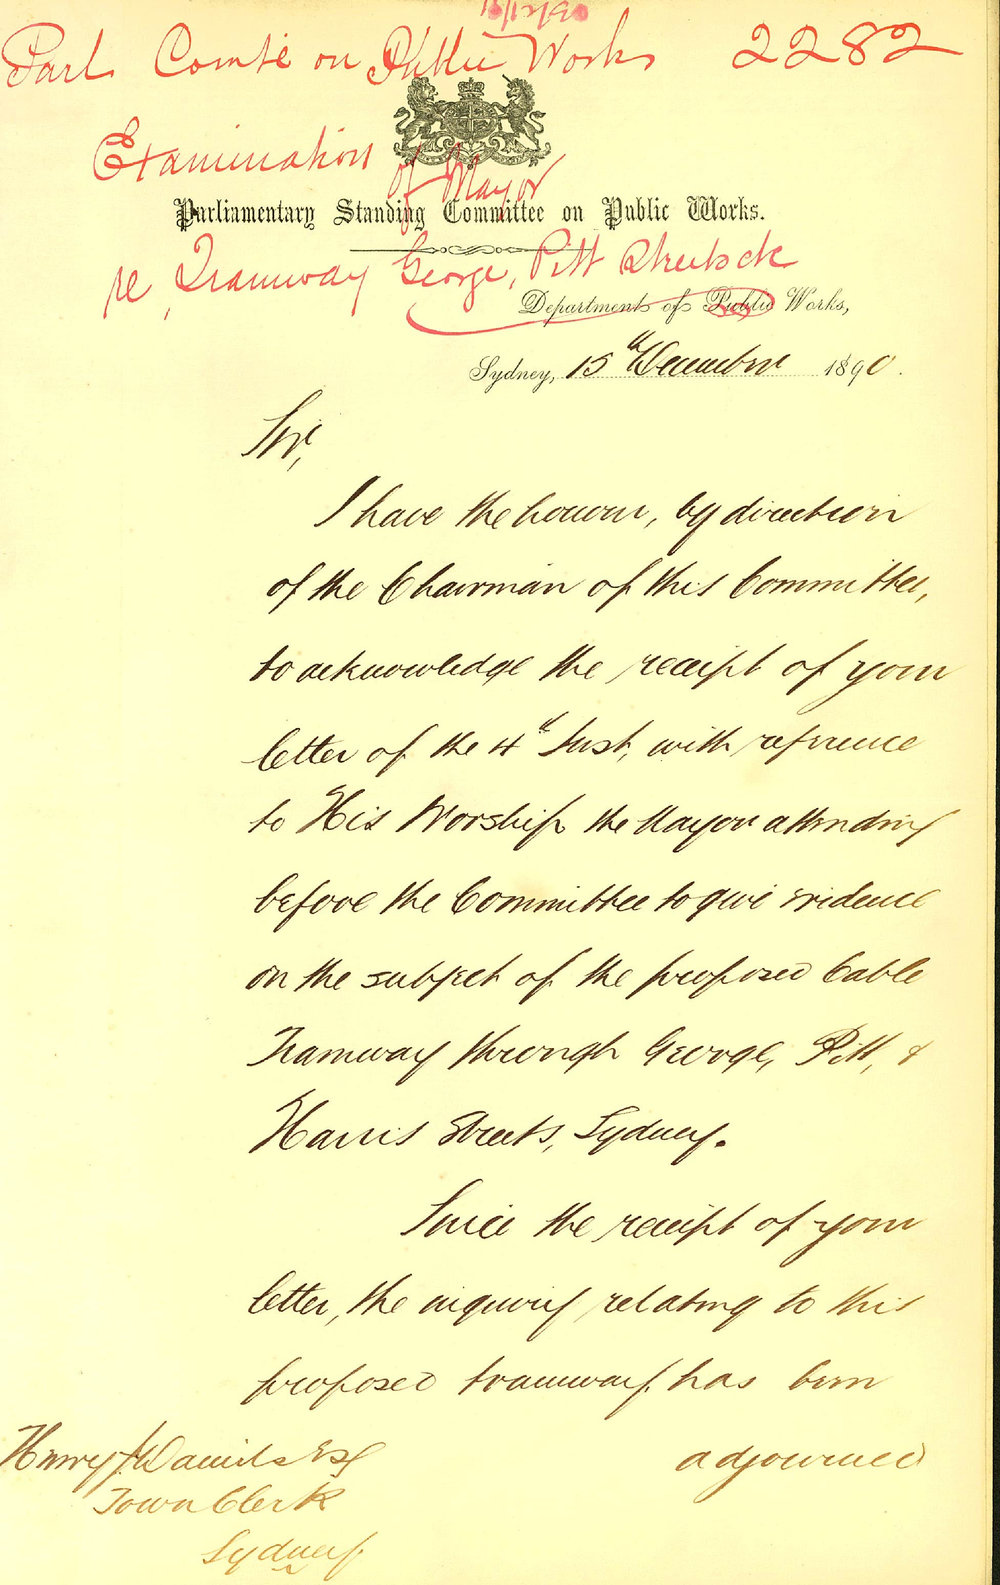 15/12/90
Parl Comte on Public Works 2282
Examination of Mayor
Parliamentary Standing Committee on Public Works.
re Tramway George, Pitt Streets etc
Department of Public Works,
Sydney, 15th December 1890.
Sir,
I have the honour, by direction
of the Chairman of this Committee,
to acknowledge the receipt of your
letter of the 4th Inst, with reference
to His Worship the Mayor attending
before the Committee to give evidence
on the subject of the proposed Cable
Tramway through George, Pitt, &
Harris Streets, Sydney.
Since the receipt of your
letter, the inquiry relating to this
proposed tramway has been
adjourned
Henry J. Daniels Esq
Town Clerk
Sydney